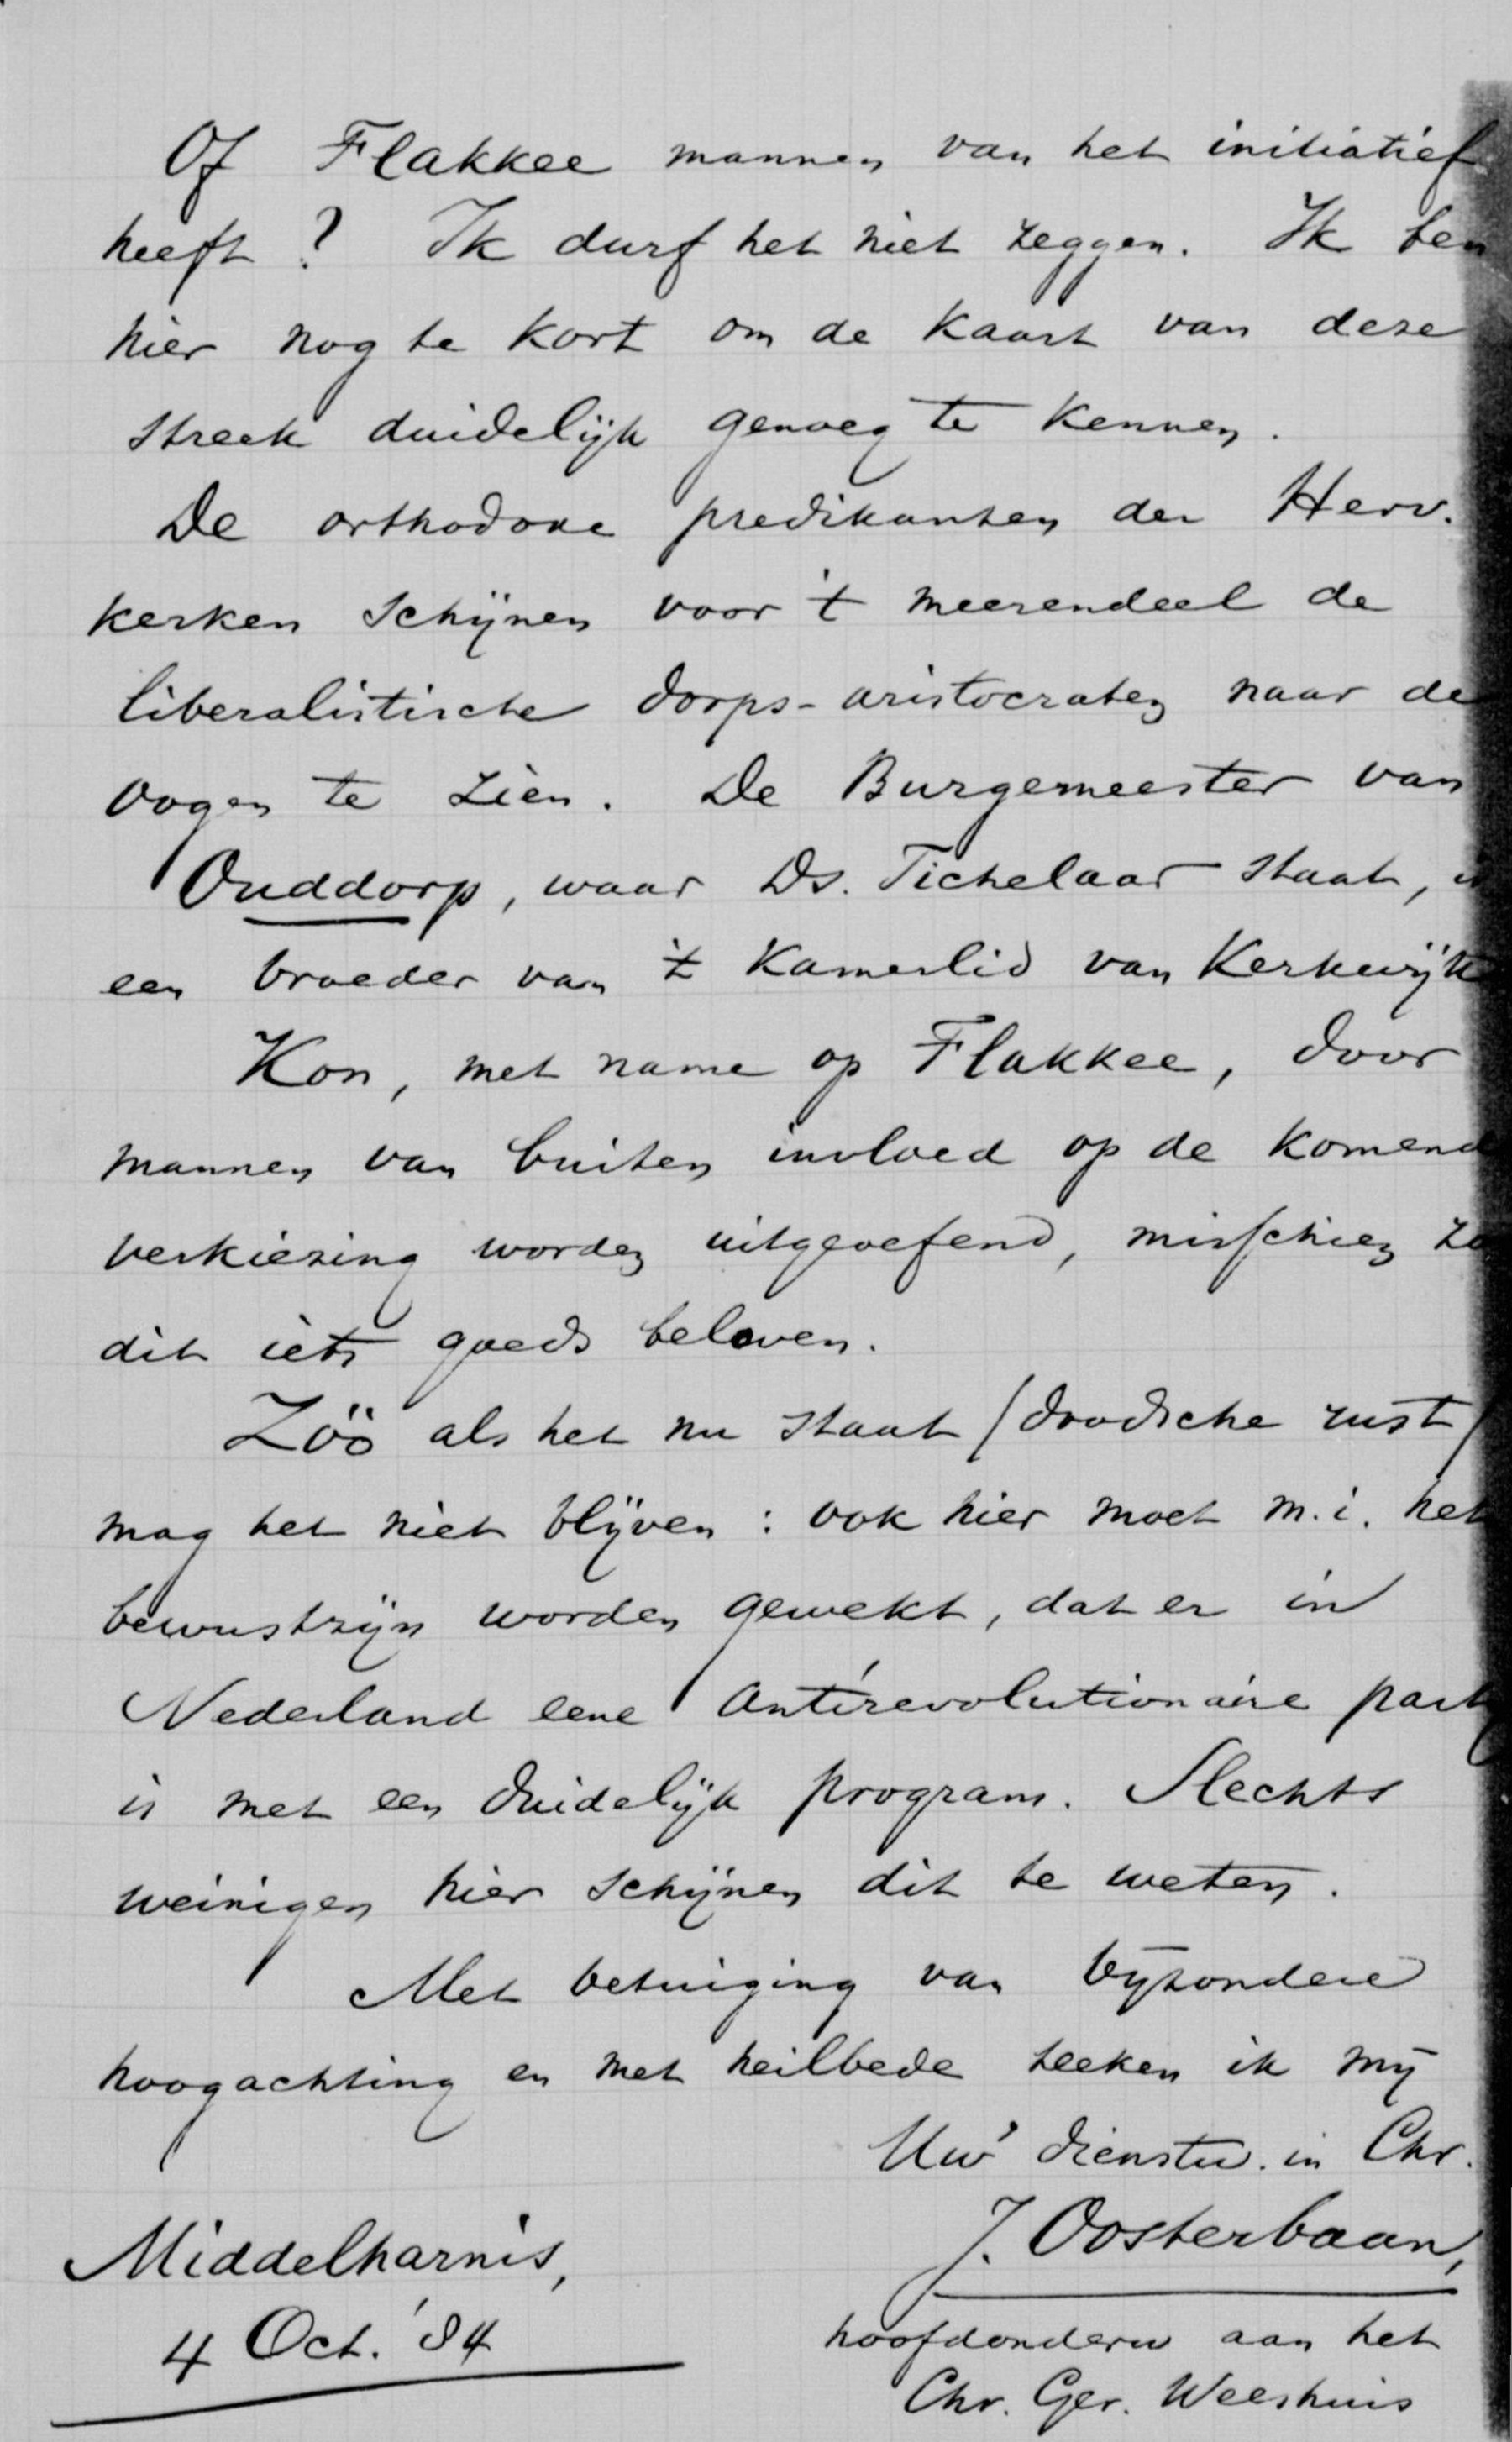 Of Flakkee mannen van het initiatief
heeft? Ik durf het niet zeggen. Ik ben
hier nog te kort om de kaart van deze
streek duidelijk genoeg te kennen.
De orthodoxe predikanten der Herv.
kerken schijnen voor 't meerendeel de
liberalistische dorps-aristocraten naar de
oogen te zien. De Burgemeester van
Ouddorp, waar Ds. Tichelaar staat, is
een broeder van 't Kamerlid van Kerkwijk
Kon, met name op Flakkee, door
mannen van buiten invloed op de komende
verkiezing worden uitgeoefend, misschien zo
dit iets goeds beloven.
Zóó als het nu staat (doodsche rust)
mag het niet blijven: ook hier moet m.i. het
bewustzijn worden gewekt, dat er in
Nederland eene Antirevolutionaire partij
is met een duidelijk program. Slechts
weinigen hier schijnen dit te weten.
Met betuiging van bijzondere
hoogachting en met heilbede teeken ik mij
Uw dienstw. in Chr.
J. Oosterbaan,
Middelharnis,
hoofdonderw aan het
4 Oct. '84
Chr. Ger. Weeshuis